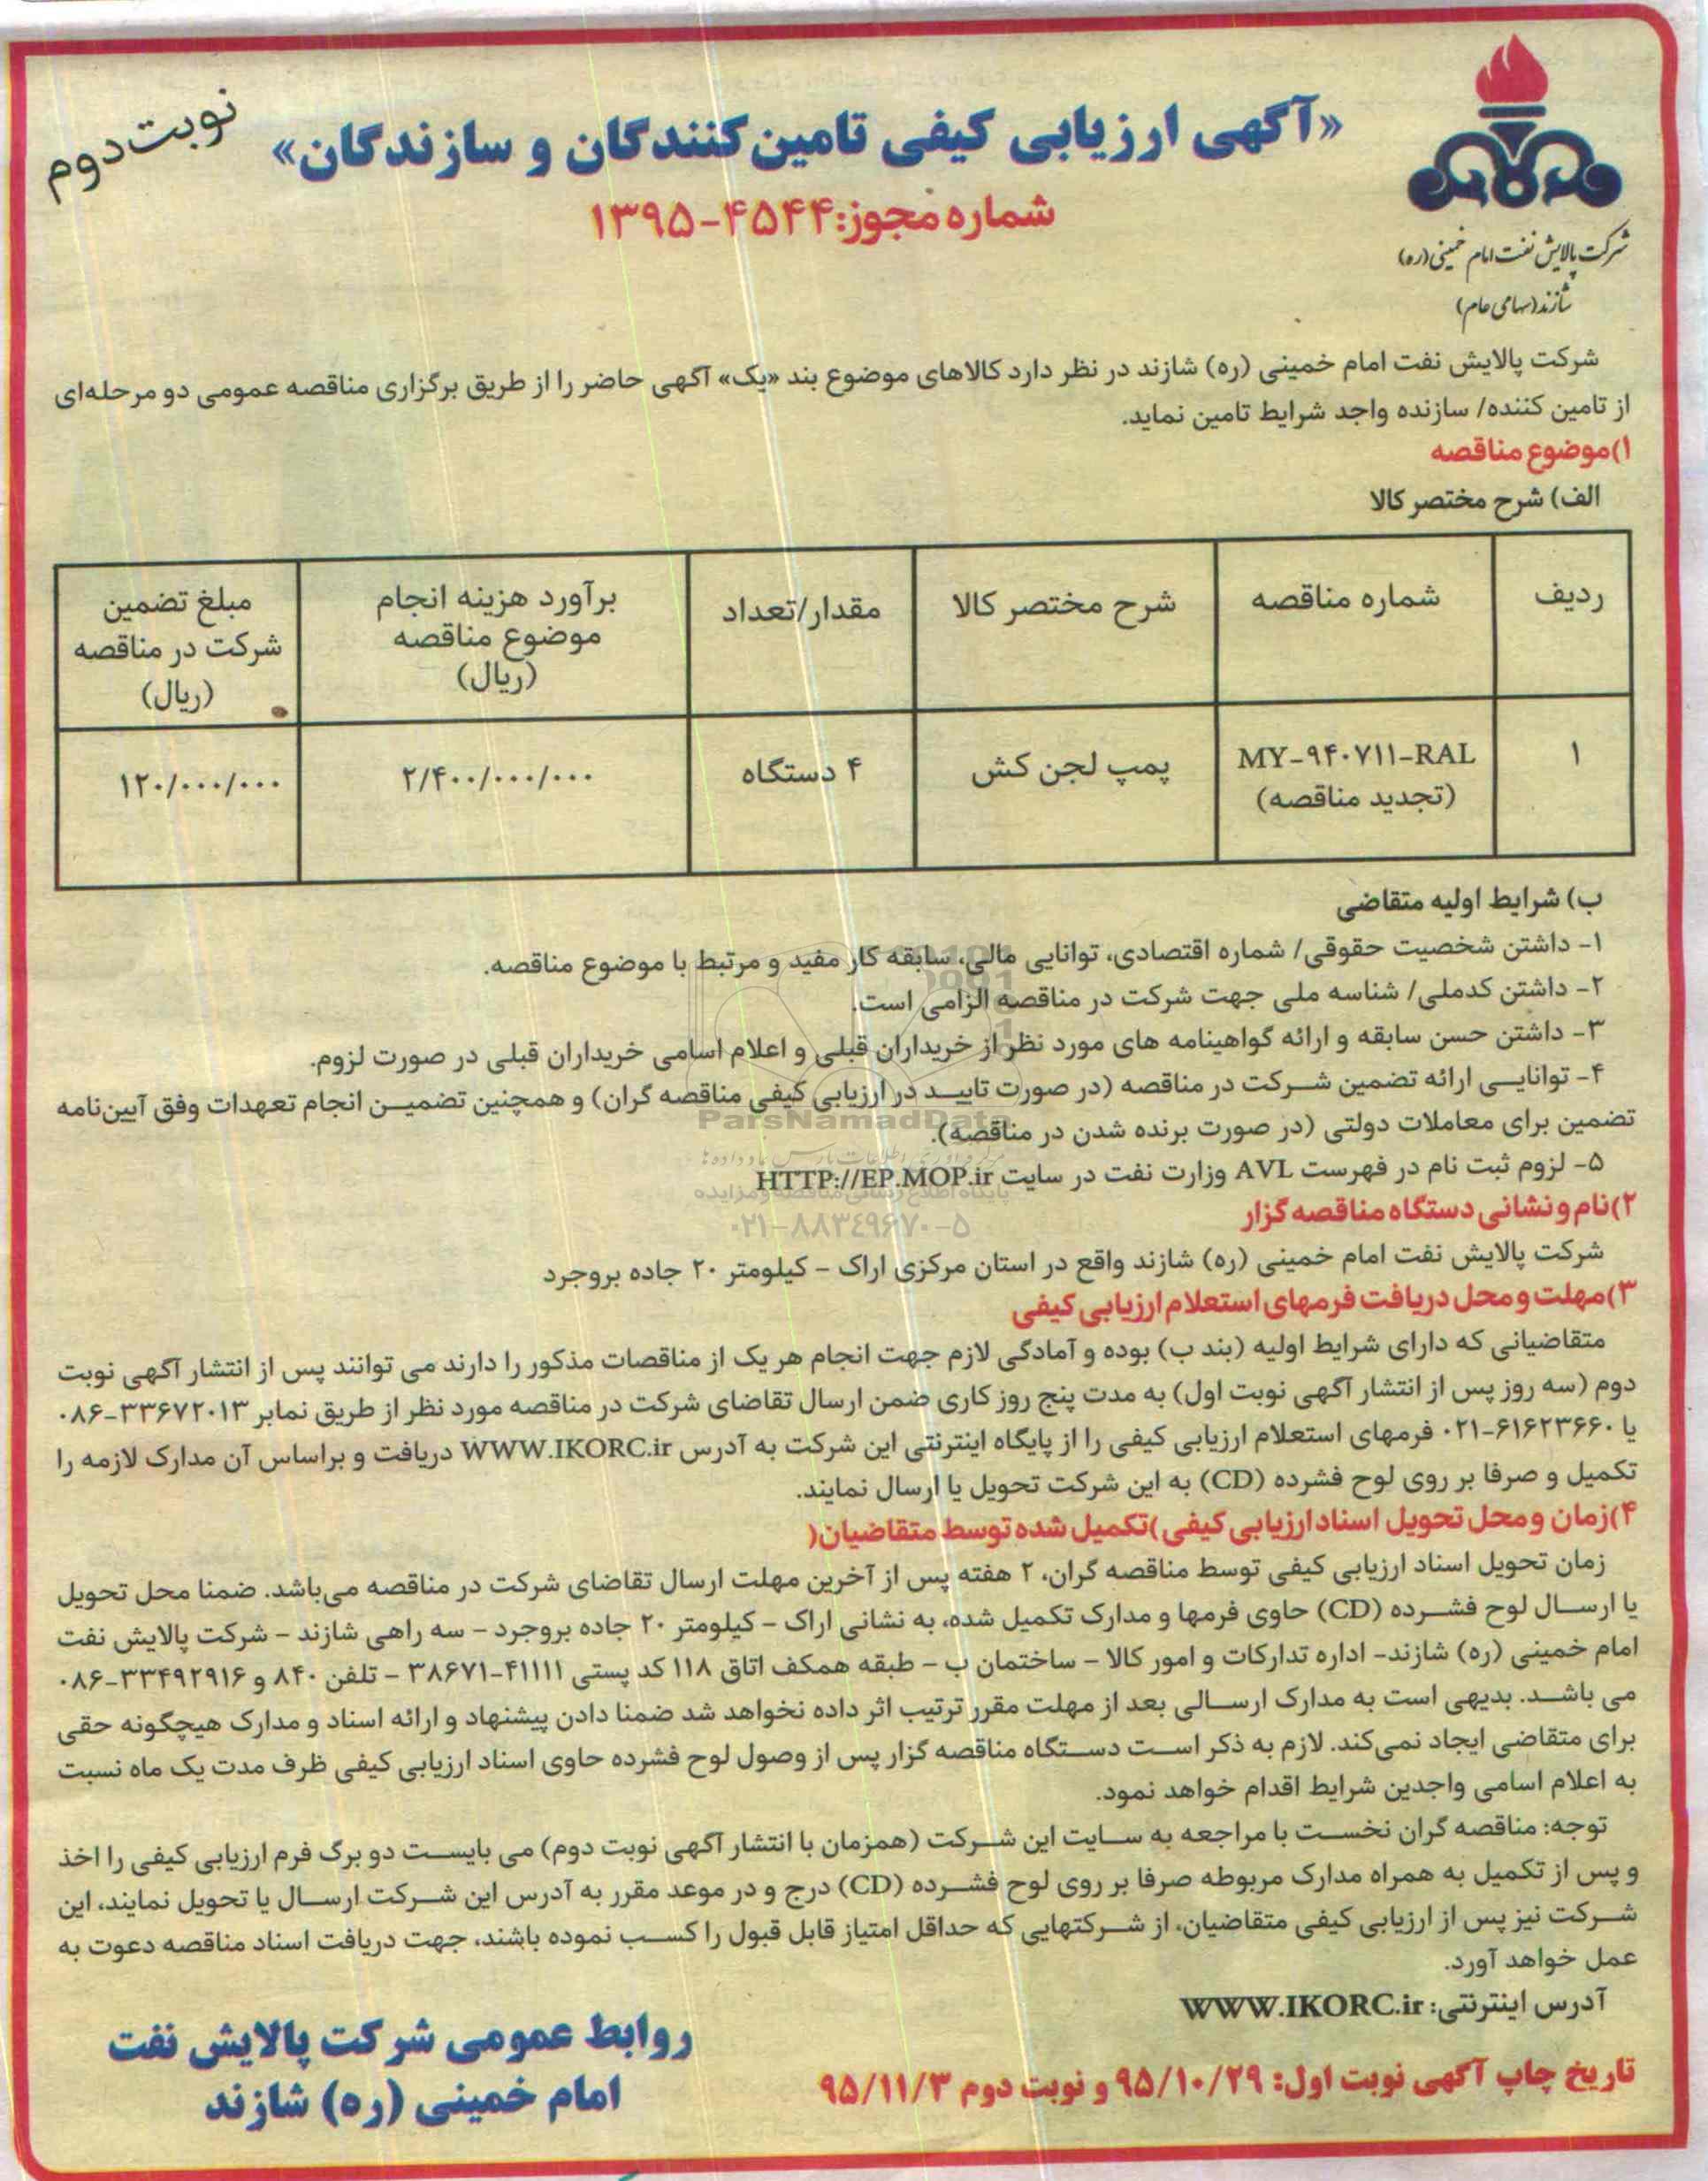 «آگهی ارزیابی کیفی تامین‌کنندگان و سازندگان»
نوبت دوم
شماره مجوز:۴۵۴۴-۱۳۹۵
شرکت پالایش نفت امام خمینی (ره)
شازند (سهامی عام)
شرکت پالایش نفت امام خمینی (ره) شازند در نظر دارد کالاهای موضوع بند «یک» آگهی حاضر را از طریق برگزاری مناقصه عمومی دو مرحله‌ای
از تامین کننده/ سازنده واجد شرایط تامین نماید.
۱)موضوع مناقصه
الف) شرح مختصر کالا
ردیف
شماره مناقصه
شرح مختصر کالا
مقدار/تعداد
برآورد هزینه انجام
موضوع مناقصه
(ریال)
مبلغ تضمین
شرکت در مناقصه
(ریال)
۱
MY-۹۴۰۷۱۱-RAL
(تجدید مناقصه)
پمپ لجن کش
۴ دستگاه
۲/۴۰۰/۰۰۰/۰۰۰
۱۲۰/۰۰۰/۰۰۰
ب) شرایط اولیه متقاضی
۱- داشتن شخصیت حقوقی/ شماره اقتصادی، توانایی مالی، سابقه کار مفید و مرتبط با موضوع مناقصه.
۲- داشتن کدملی/ شناسه ملی جهت شرکت در مناقصه الزامی است.
۳- داشتن حسن سابقه و ارائه گواهینامه های مورد نظر از خریداران قبلی و اعلام اسامی خریداران قبلی در صورت لزوم.
۴- توانایی ارائه تضمین شرکت در مناقصه (در صورت تایید در ارزیابی کیفی مناقصه گران) و همچنین تضمین انجام تعهدات وفق آیین‌نامه
تضمین برای معاملات دولتی (در صورت برنده شدن در مناقصه).
ParsNamadData
۵- لزوم ثبت نام در فهرست AVL وزارت نفت در سایت HTTP://EP.MOP.ir
پایگاه اطلاع رسانی مناقصه و مزایده
۰۲۱-۸۸۳۴۹۶۷۰-۵
۲)نام و نشانی دستگاه مناقصه گزار
شرکت پالایش نفت امام خمینی (ره) شازند واقع در استان مرکزی اراک - کیلومتر ۲۰ جاده بروجرد
۳)مهلت و محل دریافت فرمهای استعلام ارزیابی کیفی
متقاضیانی که دارای شرایط اولیه (بند ب) بوده و آمادگی لازم جهت انجام هر یک از مناقصات مذکور را دارند می توانند پس از انتشار آگهی نوبت
دوم (سه روز پس از انتشار آگهی نوبت اول) به مدت پنج روز کاری ضمن ارسال تقاضای شرکت در مناقصه مورد نظر از طریق نمابر ۳۳۶۷۲۰۱۳-۰۸۶
یا ۶۱۶۲۳۶۶۰-۰۲۱ فرمهای استعلام ارزیابی کیفی را از پایگاه اینترنتی این شرکت به آدرس WWW.IKORC.ir دریافت و براساس آن مدارک لازمه را
تکمیل و صرفا بر روی لوح فشرده (CD) به این شرکت تحویل یا ارسال نمایند.
۴)زمان و محل تحویل اسناد ارزیابی کیفی )تکمیل شده توسط متقاضیان(
زمان تحویل اسناد ارزیابی کیفی توسط مناقصه گران، ۲ هفته پس از آخرین مهلت ارسال تقاضای شرکت در مناقصه می‌باشد. ضمنا محل تحویل
یا ارسال لوح فشرده (CD) حاوی فرمها و مدارک تکمیل شده، به نشانی اراک - کیلومتر ۲۰ جاده بروجرد - سه راهی شازند - شرکت پالایش نفت
امام خمینی (ره) شازند- اداره تدارکات و امور کالا - ساختمان ب - طبقه همکف اتاق ۱۱۸ کد پستی ۴۱۱۱۱-۳۸۶۷۱ - تلفن ۸۴۰ و ۳۳۴۹۲۹۱۶-۰۸۶
می باشد. بدیهی است به مدارک ارسالی بعد از مهلت مقرر ترتیب اثر داده نخواهد شد ضمنا دادن پیشنهاد و ارائه اسناد و مدارک هیچگونه حقی
برای متقاضی ایجاد نمی‌کند. لازم به ذکر است دستگاه مناقصه گزار پس از وصول لوح فشرده حاوی اسناد ارزیابی کیفی ظرف مدت یک ماه نسبت
به اعلام اسامی واجدین شرایط اقدام خواهد نمود.
توجه: مناقصه گران نخست با مراجعه به سایت این شرکت (همزمان با انتشار آگهی نوبت دوم) می بایست دو برگ فرم ارزیابی کیفی را اخذ
و پس از تکمیل به همراه مدارک مربوطه صرفا بر روی لوح فشرده (CD) درج و در موعد مقرر به آدرس این شرکت ارسال یا تحویل نمایند، این
شرکت نیز پس از ارزیابی کیفی متقاضیان، از شرکتهایی که حداقل امتیاز قابل قبول را کسب نموده باشند، جهت دریافت اسناد مناقصه دعوت به
عمل خواهد آورد.
آدرس اینترنتی: WWW.IKORC.ir
تاریخ چاپ آگهی نوبت اول: ۹۵/۱۰/۲۹ و نوبت دوم ۹۵/۱۱/۳
روابط عمومی شرکت پالایش نفت
امام خمینی (ره) شازند